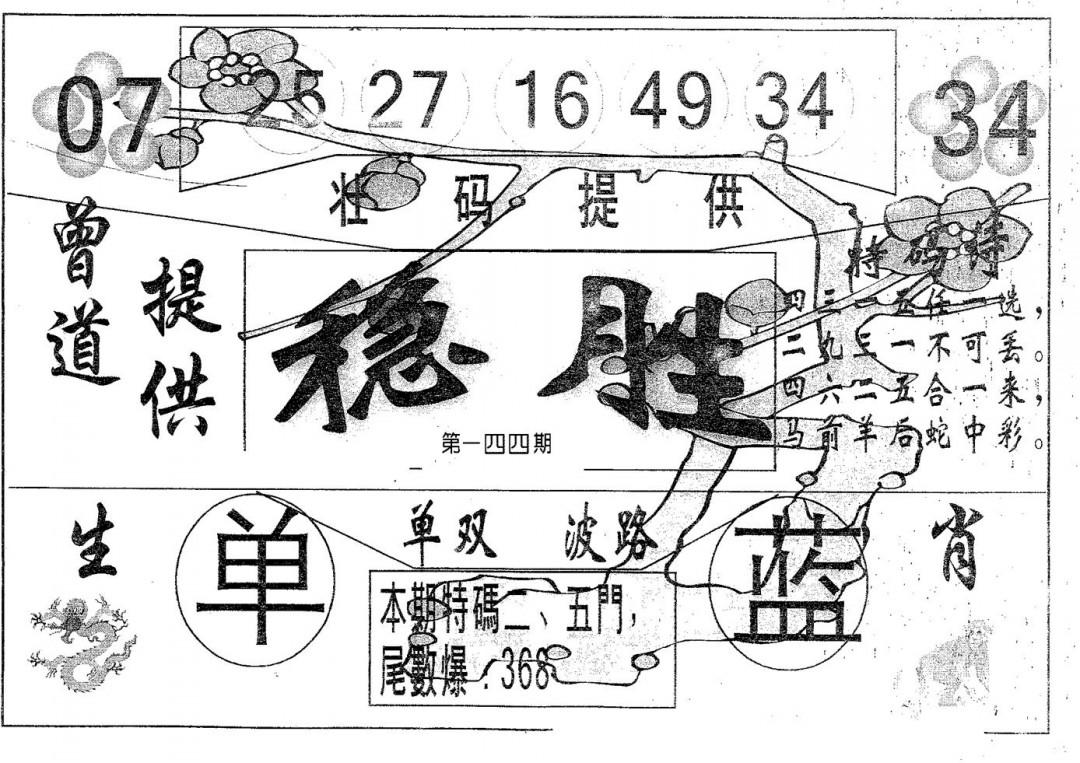 07 25 27 16 49 34 34
壮码提供
曾道
提供
稳胜
第一四四期
特码诗
四三一五任一选，
二九三一不可丢。
四六二五合一来，
马前羊后蛇中彩。
生 单 单双 波路 蓝 肖
本期特碼二、五門，
尾數爆：368